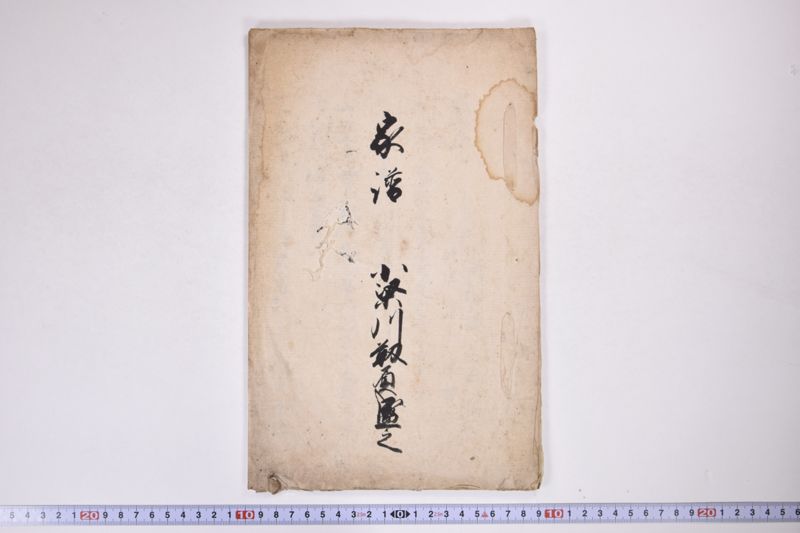 家譜
小梁川靱負盛之
5 4 3 2 1 20 9 8 7 6 5 4 3 2 1 10 9 8 7 6 5 4 3 2 1 0 1 2 3 4 5 6 7 8 9 10 1 2 3 4 5 6 7 8 9 20 1 2 3 4 5 6